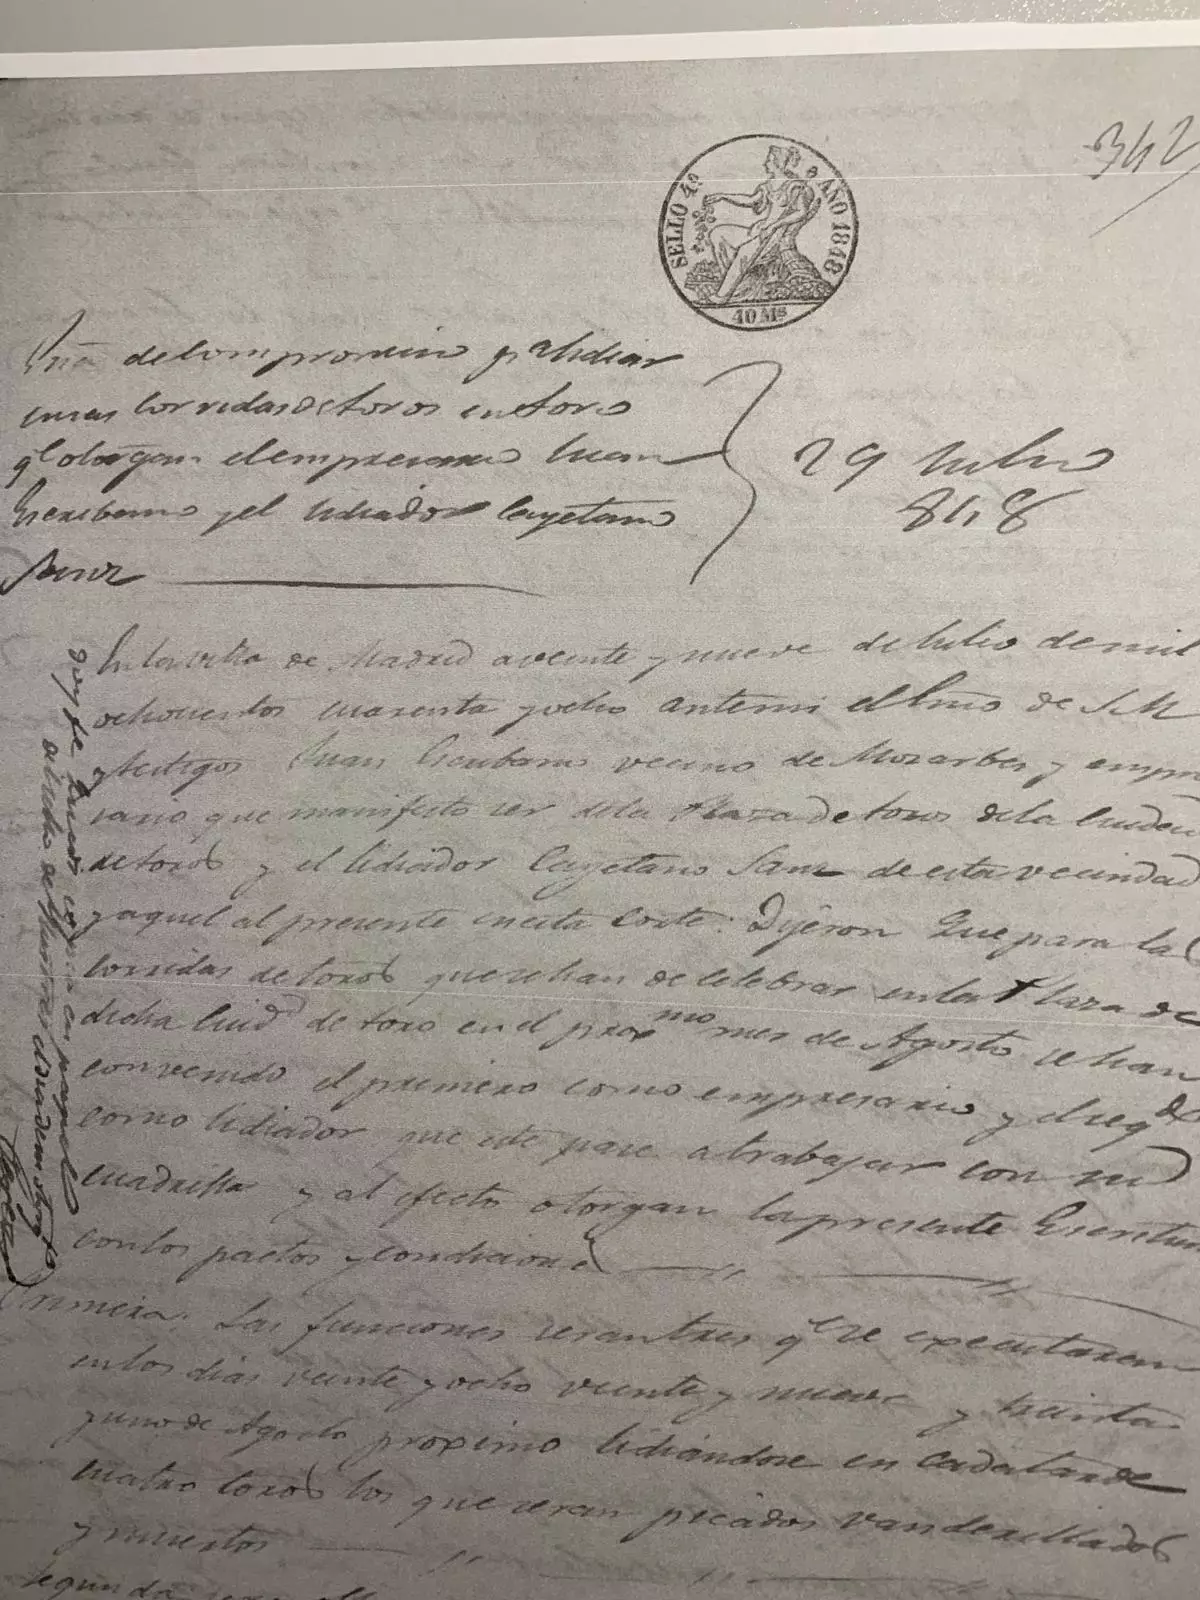 342
SELLO 4º AÑO 1848
40 Ms
de compromiso pª lidiar
unas corridas de toros en toro
qe otorgan el empresario Juan
Escribano y el lidiador Cayetano
Sanz
29 Julio
848
En la villa de Madrid a veinte y nueve de Julio de mil
ochocientos cuarenta y ocho ante mi el Esno de S M
y testigos Juan Escribano vecino de Mozarbes y empre
sario que manifesto ser de la Plaza de toros de la Ciudad
de toro y el lidiador Cayetano Sanz de esta vecindad
y aquel al presente en esta Corte: Dijeron Que para las
corridas de toros que se han de celebrar en la Plaza de
dicha Ciudd de toro en el proxmo mes de Agosto se han
convenido el primero como empresario y el segdo
como lidiador que este pase a trabajar con su
cuadrilla y al efecto otorgan la presente Escritura
con los pactos y condiciones
Primera. Las funciones seran tres qe se executaran
en los dias veinte y ocho veinte y nueve y treinta
y uno de Agosto proximo lidiándose en cada tarde
cuatro toros los que seran picados vanderillados
y muertos
Segunda
doy fe
copia en papel